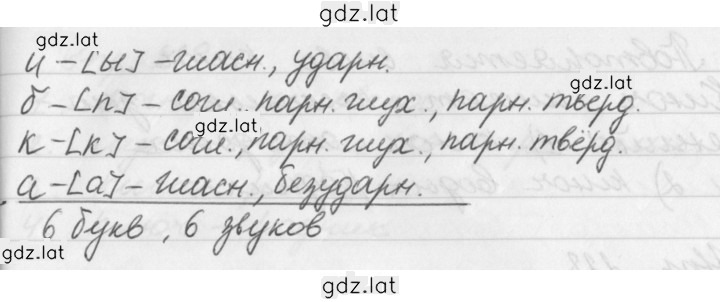 gdz.lat
gdz.lat
и – [ы] – гласн., ударн.
gdz.lat
б – [п] – согл. парн. глух., парн. твёрд.
gdz.lat
к – [к] – согл., парн. глух., парн. твёрд.
а – [а] – гласн., безударн.
6 букв, 6 звуков
gdz.lat
gdz.lat
gdz.lat